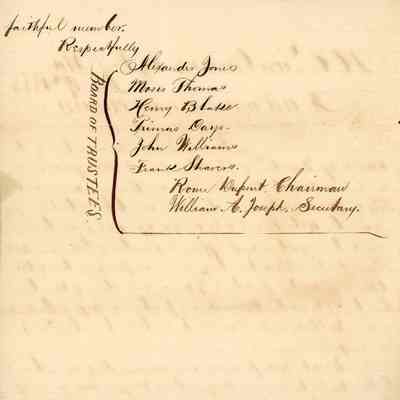 faithful member.
Respectfully
BOARD OF TRUSTEES.
Alexander Jones
Moses Thomas
Henry Blake
Days.
John Williams
Frank
Rome Dupent, Chairman
William A. Joseph, Secretary.